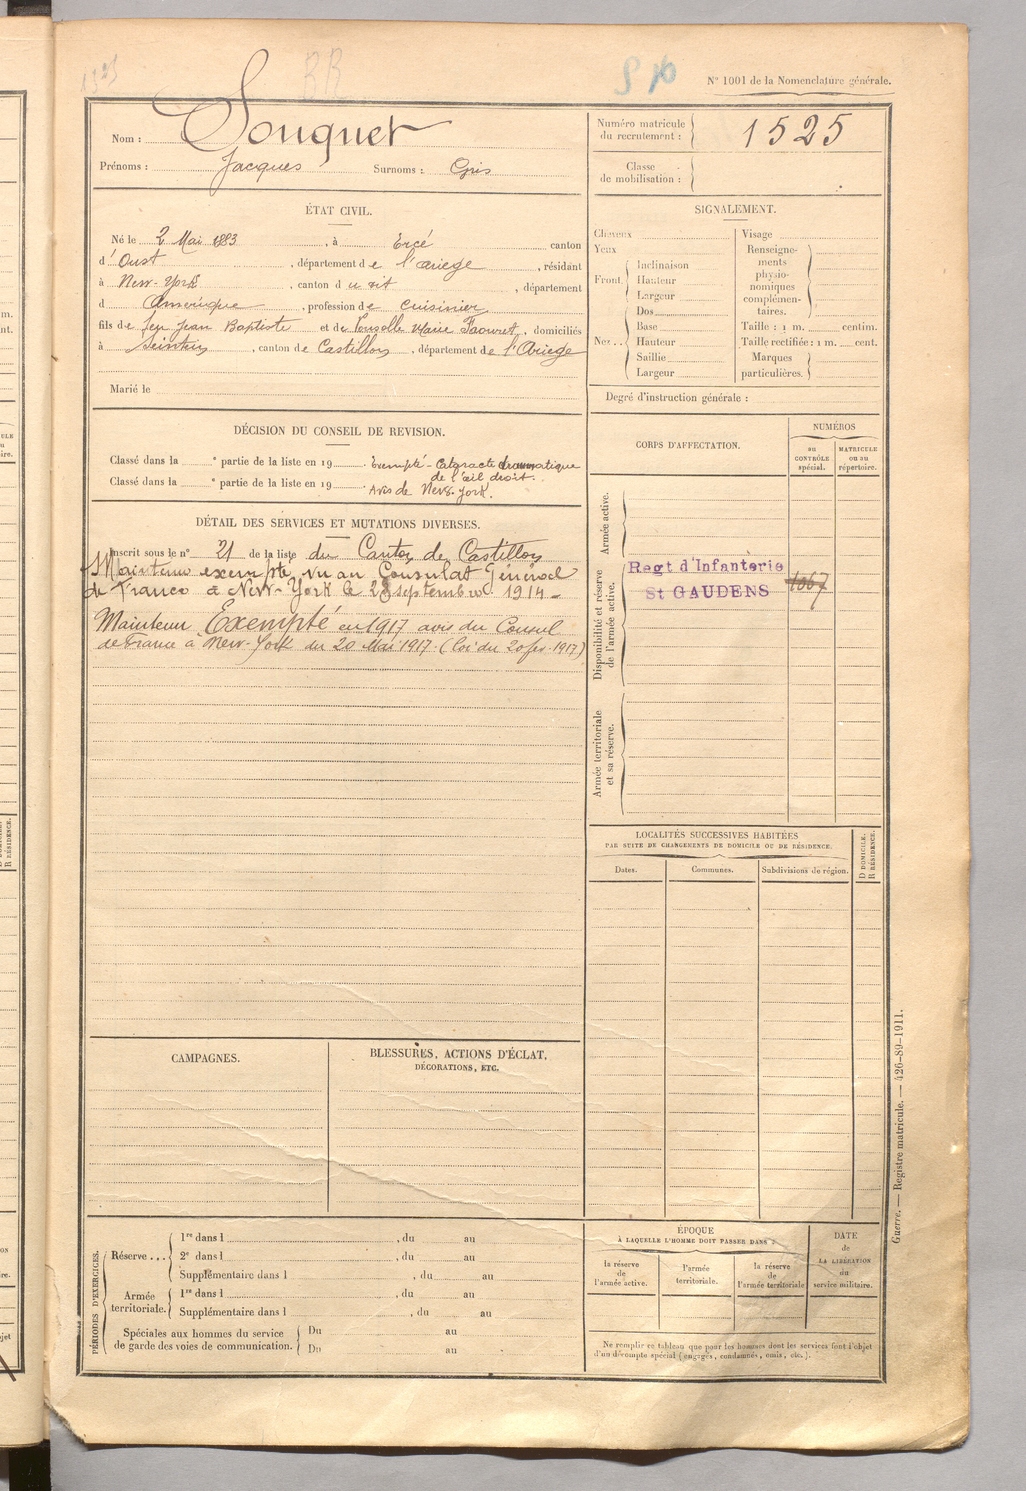 1525
BB
S
N° 1001 de la Nomenclature générale.
Nom : Souquet
Prénoms : Jacques Surnoms : Gris
Numéro matricule du recrutement : 1525
Classe de mobilisation :
ÉTAT CIVIL.
Né le 2 Mai 1883, à Ercé canton
d' Oust, département de l'ariege, résidant
à New-York, canton d u dit, département
d Amérique, profession de Cuisinier
fils de feu Jean Baptiste et de Marie Faouret, domiciliés
à Seintein, canton de Castillon, département de l'Ariege
Marié le
SIGNALEMENT.
Cheveux
Yeux
Front
Inclinaison
Hauteur
Largeur
Nez
Dos
Base
Hauteur
Saillie
Largeur
Visage
Renseignements physionomiques complémentaires.
Taille : 1 m. centim.
Taille rectifiée : 1 m. cent.
Marques particulières.
Degré d'instruction générale :
DÉCISION DU CONSEIL DE REVISION.
Classé dans la ° partie de la liste en 19 Exempté - Cataracte traumatique
de l'œil droit.
Classé dans la ° partie de la liste en 19 Avis de New-York.
CORPS D'AFFECTATION.
NUMÉROS
au CONTRÔLE spécial.
MATRICULE ou au répertoire.
Armée active.
Disponibilité et réserve de l'armée active.
Regt d'Infanterie
St GAUDENS
1067
Armée territoriale et sa réserve.
DÉTAIL DES SERVICES ET MUTATIONS DIVERSES.
Inscrit sous le n° 21 de la liste du Canton de Castillon
Maintenu exempté, vu au Consulat Général
de France à New-York le 28 septembre 1914 -
Maintenu Exempté en 1917 avis du Consul
de France à New-York du 20 Mai 1917. (loi du 20 fev. 1917)
LOCALITÉS SUCCESSIVES HABITÉES
PAR SUITE DE CHANGEMENTS DE DOMICILE OU DE RÉSIDENCE.
Dates.
Communes.
Subdivisions de région.
D DOMICILE.
R RÉSIDENCE.
CAMPAGNES.
BLESSURES, ACTIONS D'ÉCLAT,
DÉCORATIONS, ETC.
PÉRIODES D'EXERCICES.
Réserve ...
1re dans l , du au
2e dans l , du au
Supplémentaire dans l , du au
Armée territoriale.
1re dans l , du au
Supplémentaire dans l , du au
Spéciales aux hommes du service
de garde des voies de communication.
Du au
Du au
ÉPOQUE
À LAQUELLE L'HOMME DOIT PASSER DANS :
la réserve de l'armée active.
l'armée territoriale.
la réserve de l'armée territoriale
DATE de LA LIBÉRATION du service militaire.
Ne remplir ce tableau que pour les hommes dont les services font l'objet
d'un décompte spécial (engagés, condamnés, omis, etc.).
Guerre. — Registre matricule. — 426-89-1911.